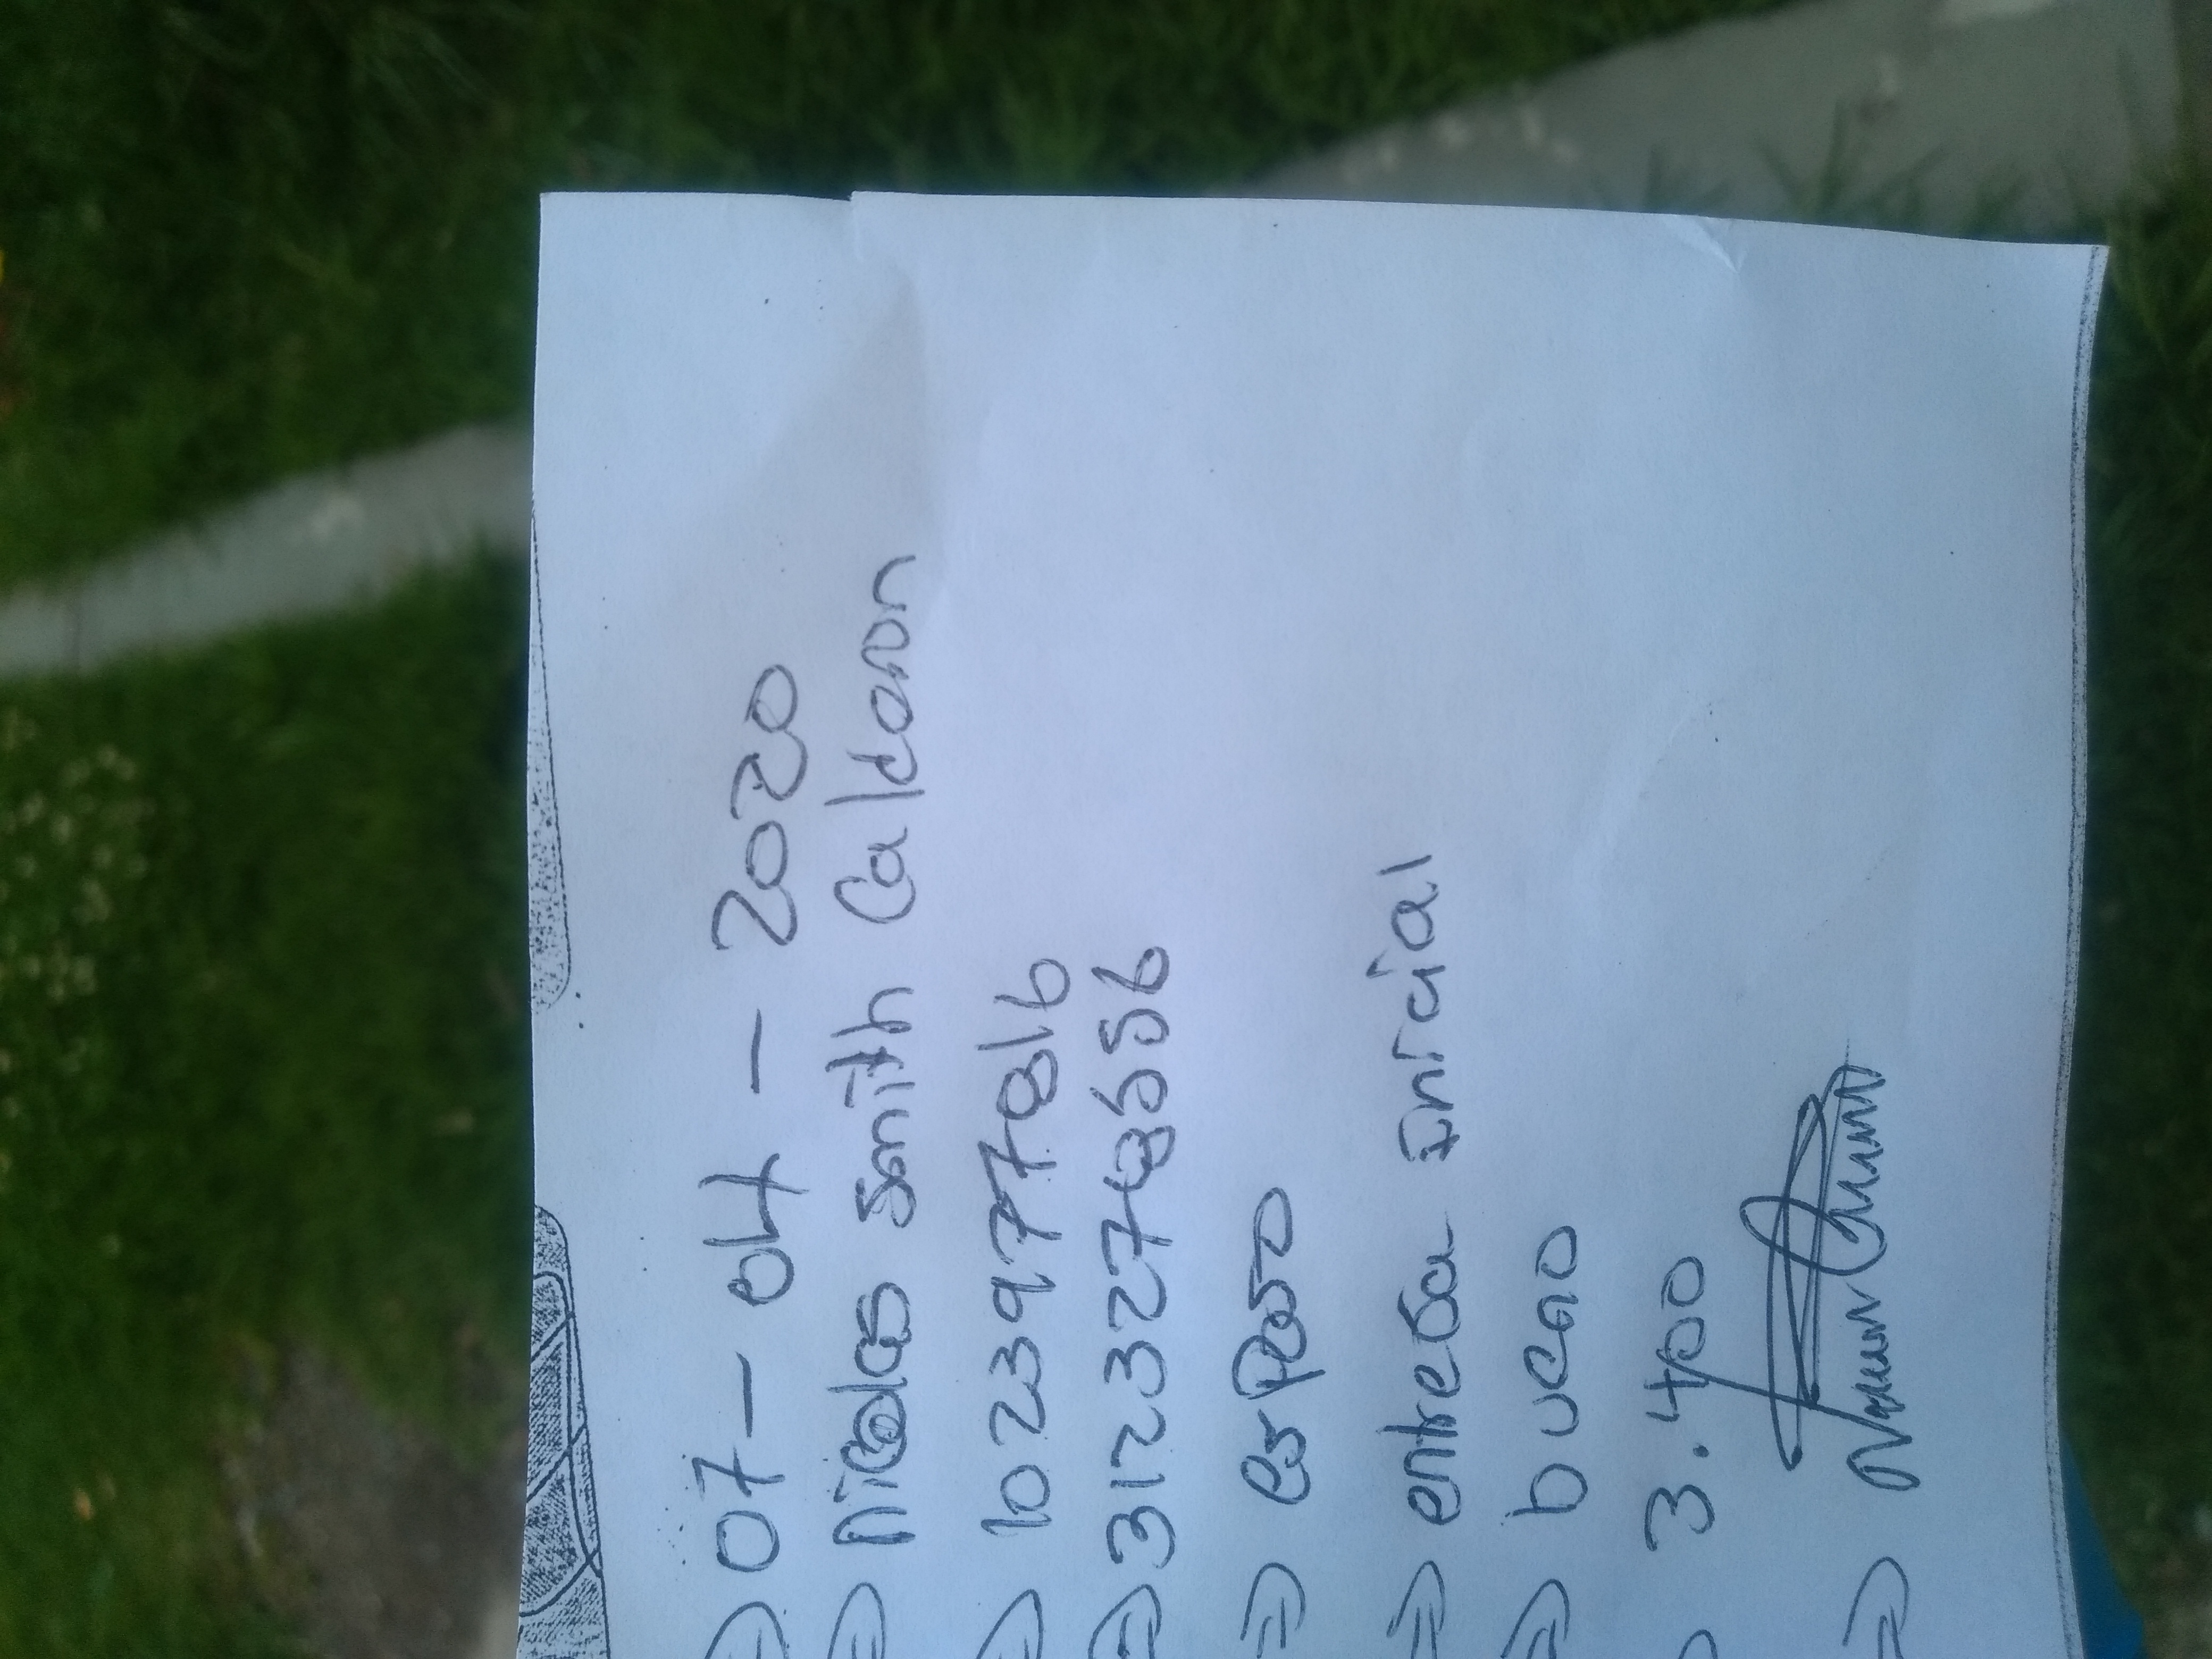 07 - 04 - 2020
Nicolas Smith Calderon
1023977816
3123278556
esposo
entrega inicial
bueno
3.400